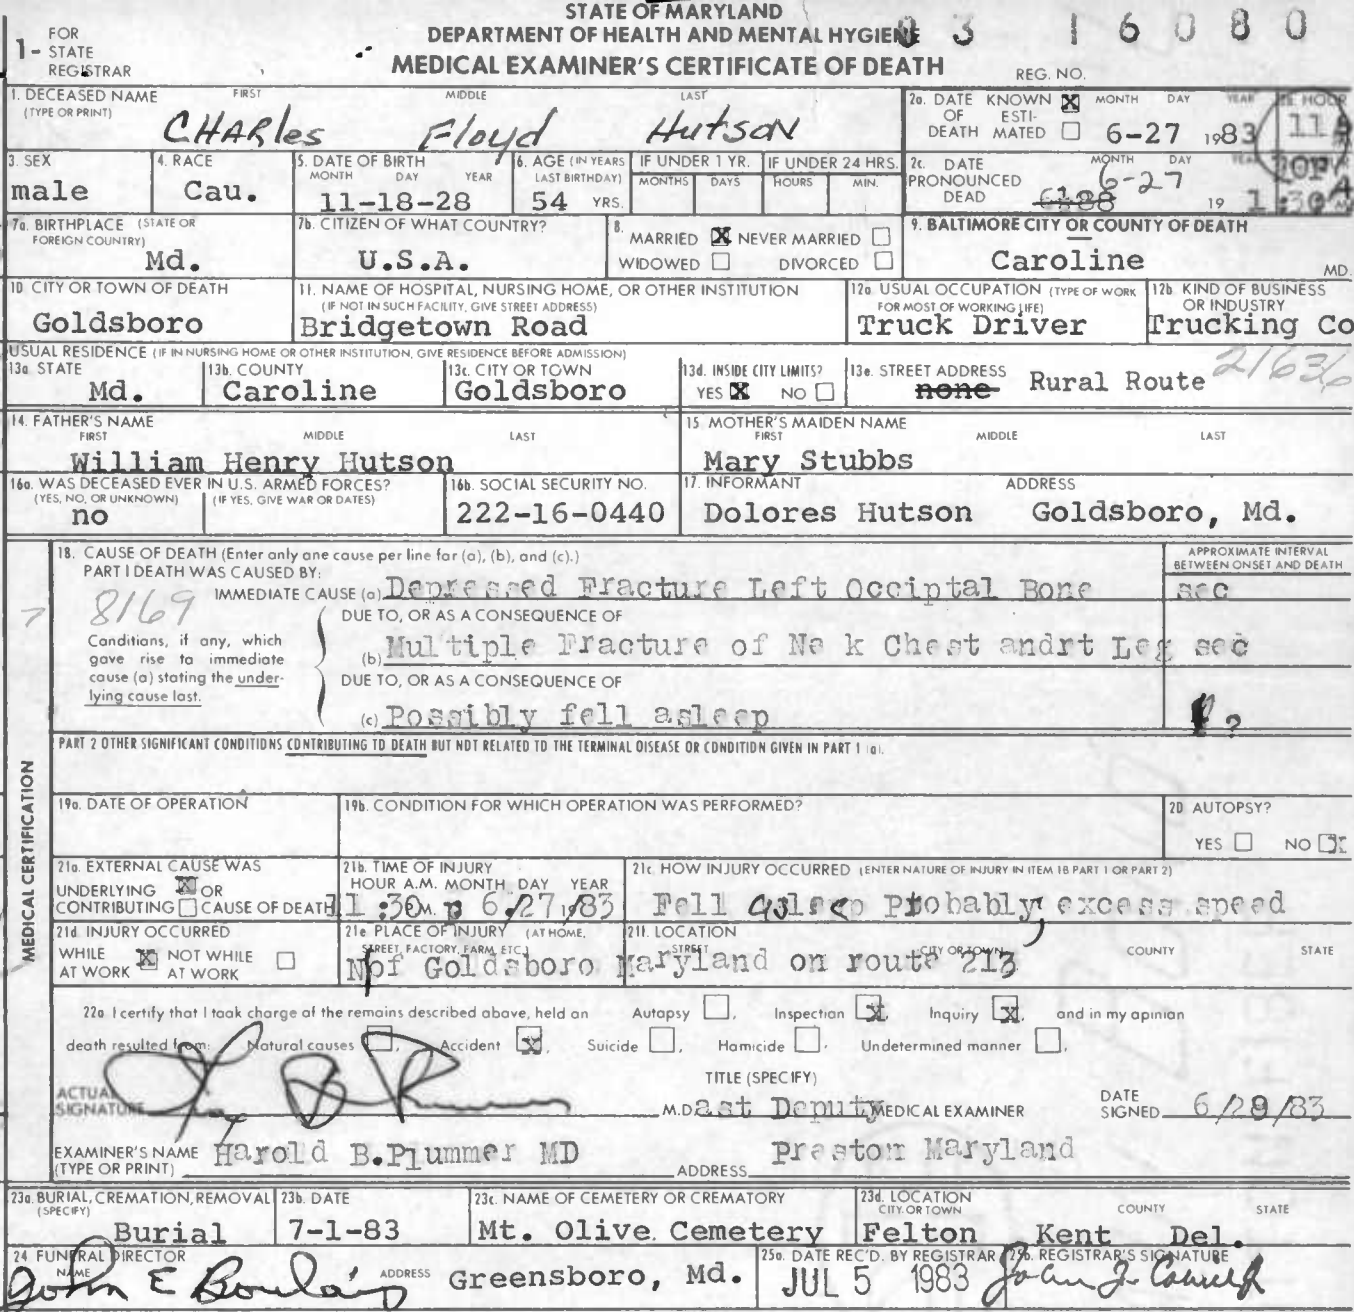 STATE OF MARYLAND
DEPARTMENT OF HEALTH AND MENTAL HYGIENE
MEDICAL EXAMINER'S CERTIFICATE OF DEATH
1- FOR STATE REGISTRAR
3 1 6 0 8 0
REG. NO.
1. DECEASED NAME (TYPE OR PRINT) FIRST MIDDLE LAST
CHARles Floyd HutsoN
2a. DATE OF DEATH KNOWN X ESTIMATED MONTH DAY YEAR
6-27 1983 HOUR 11
3. SEX
male
4. RACE
Cau.
5. DATE OF BIRTH MONTH DAY YEAR
11-18-28
6. AGE (IN YEARS LAST BIRTHDAY)
54 YRS.
IF UNDER 1 YR. MONTHS DAYS
IF UNDER 24 HRS. HOURS MIN.
2c. DATE PRONOUNCED DEAD MONTH DAY
6-27
19
7a. BIRTHPLACE (STATE OR FOREIGN COUNTRY)
Md.
7b. CITIZEN OF WHAT COUNTRY?
U.S.A.
8. MARRIED X NEVER MARRIED
WIDOWED DIVORCED
9. BALTIMORE CITY OR COUNTY OF DEATH
Caroline MD.
10. CITY OR TOWN OF DEATH
Goldsboro
11. NAME OF HOSPITAL, NURSING HOME, OR OTHER INSTITUTION
(IF NOT IN SUCH FACILITY, GIVE STREET ADDRESS)
Bridgetown Road
12a. USUAL OCCUPATION (TYPE OF WORK FOR MOST OF WORKING LIFE)
Truck Driver
12b. KIND OF BUSINESS OR INDUSTRY
Trucking Co
USUAL RESIDENCE (IF IN NURSING HOME OR OTHER INSTITUTION, GIVE RESIDENCE BEFORE ADMISSION)
13a STATE
Md.
13b. COUNTY
Caroline
13c. CITY OR TOWN
Goldsboro
13d. INSIDE CITY LIMITS?
YES X NO
13e. STREET ADDRESS
none Rural Route 21636
14. FATHER'S NAME FIRST MIDDLE LAST
William Henry Hutson
15 MOTHER'S MAIDEN NAME FIRST MIDDLE LAST
Mary Stubbs
16a. WAS DECEASED EVER IN U.S. ARMED FORCES?
(YES, NO, OR UNKNOWN) (IF YES, GIVE WAR OR DATES)
no
16b. SOCIAL SECURITY NO.
222-16-0440
17. INFORMANT ADDRESS
Dolores Hutson Goldsboro, Md.
MEDICAL CERTIFICATION
18. CAUSE OF DEATH (Enter only one cause per line for (a), (b), and (c).)
APPROXIMATE INTERVAL BETWEEN ONSET AND DEATH
PART I DEATH WAS CAUSED BY:
IMMEDIATE CAUSE (a) Depressed Fracture Left Occiptal Bone sec
8169
DUE TO, OR AS A CONSEQUENCE OF
Conditions, if any, which gave rise to immediate cause (a) stating the underlying cause last.
(b) Multiple Fracture of Ne k Chest andrt Leg sec
DUE TO, OR AS A CONSEQUENCE OF
(c) Possibly fell asleep ?
PART 2 OTHER SIGNIFICANT CONDITIONS CONTRIBUTING TO DEATH BUT NOT RELATED TO THE TERMINAL DISEASE OR CONDITION GIVEN IN PART 1 (a).
19a. DATE OF OPERATION
19b. CONDITION FOR WHICH OPERATION WAS PERFORMED?
20 AUTOPSY?
YES NO X
21a. EXTERNAL CAUSE WAS
UNDERLYING X OR
CONTRIBUTING CAUSE OF DEATH
21b. TIME OF INJURY
HOUR A.M. MONTH DAY YEAR
1:30 P.M. 6/27/1983
21c. HOW INJURY OCCURRED (ENTER NATURE OF INJURY IN ITEM 18 PART 1 OR PART 2)
Fell asleep Probably, excess speed
21d. INJURY OCCURRED
WHILE AT WORK X NOT WHILE AT WORK
21e. PLACE OF INJURY (AT HOME, STREET, FACTORY, FARM, ETC.)
21f. LOCATION STREET CITY OR TOWN COUNTY STATE
N of Goldsboro Maryland on route 213
22a I certify that I took charge of the remains described above, held an Autopsy , Inspection X, Inquiry X, and in my opinion
death resulted from: Natural causes , Accident X, Suicide , Homicide , Undetermined manner .
ACTUAL SIGNATURE
TITLE (SPECIFY)
M.D. ast Deputy MEDICAL EXAMINER
DATE SIGNED 6/29/83
EXAMINER'S NAME (TYPE OR PRINT) Harold B.Plummer MD
ADDRESS Preston Maryland
23a. BURIAL, CREMATION, REMOVAL (SPECIFY)
Burial
23b. DATE
7-1-83
23c. NAME OF CEMETERY OR CREMATORY
Mt. Olive Cemetery
23d. LOCATION CITY OR TOWN COUNTY STATE
Felton Kent Del.
24 FUNERAL DIRECTOR
NAME John E Boulais ADDRESS Greensboro, Md.
25a. DATE REC'D. BY REGISTRAR
JUL 5 1983
25b. REGISTRAR'S SIGNATURE